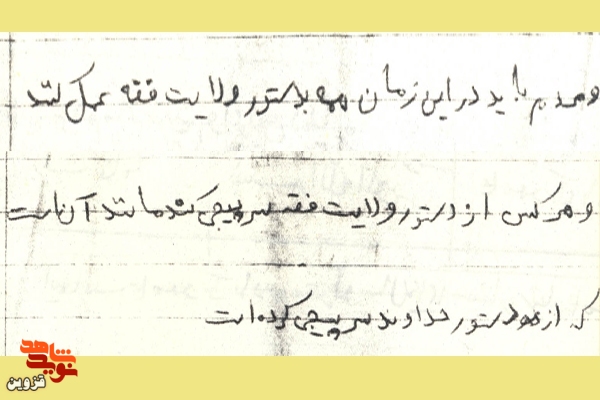 ومردم باید در این زمان همه بدستور ولایت فقه عمل کنند
و هر کس از دستور ولایت فقه سرپیچی کند مانند آن است
که از دستور خداوند سرپیچی کرده است
نوید شاهد
قزوین